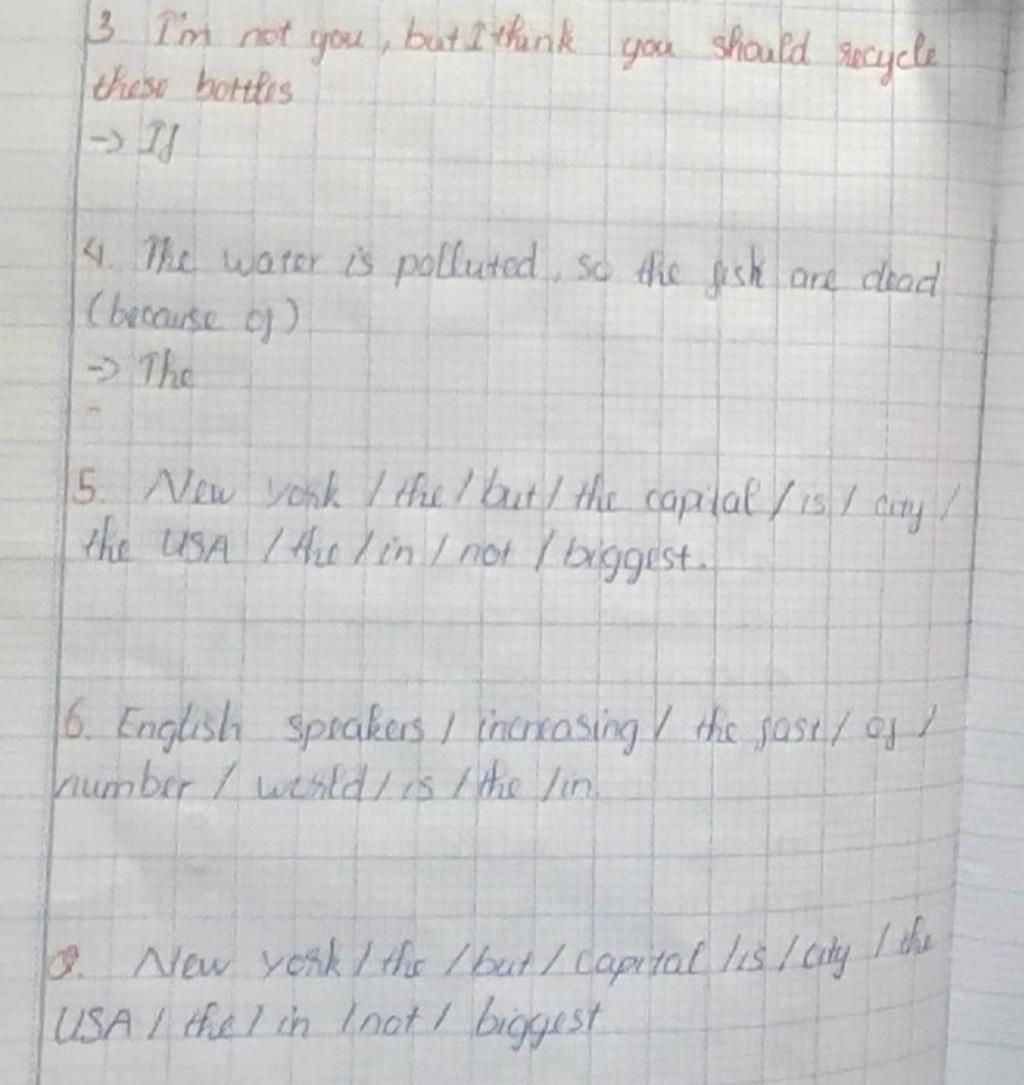 3. I'm not you, but I think you should recycle
these bottles
-> If
4. The water is polluted, so the fish are dead
(because of)
-> The
5. New york / the / but / the capital / is / city /
the USA / the / in / not / biggest.
6. English speakers / increasing / the fast / of /
number / world / is / the / in.
9. New york / the / but / capital / is / city / the
USA / the / in / not / biggest